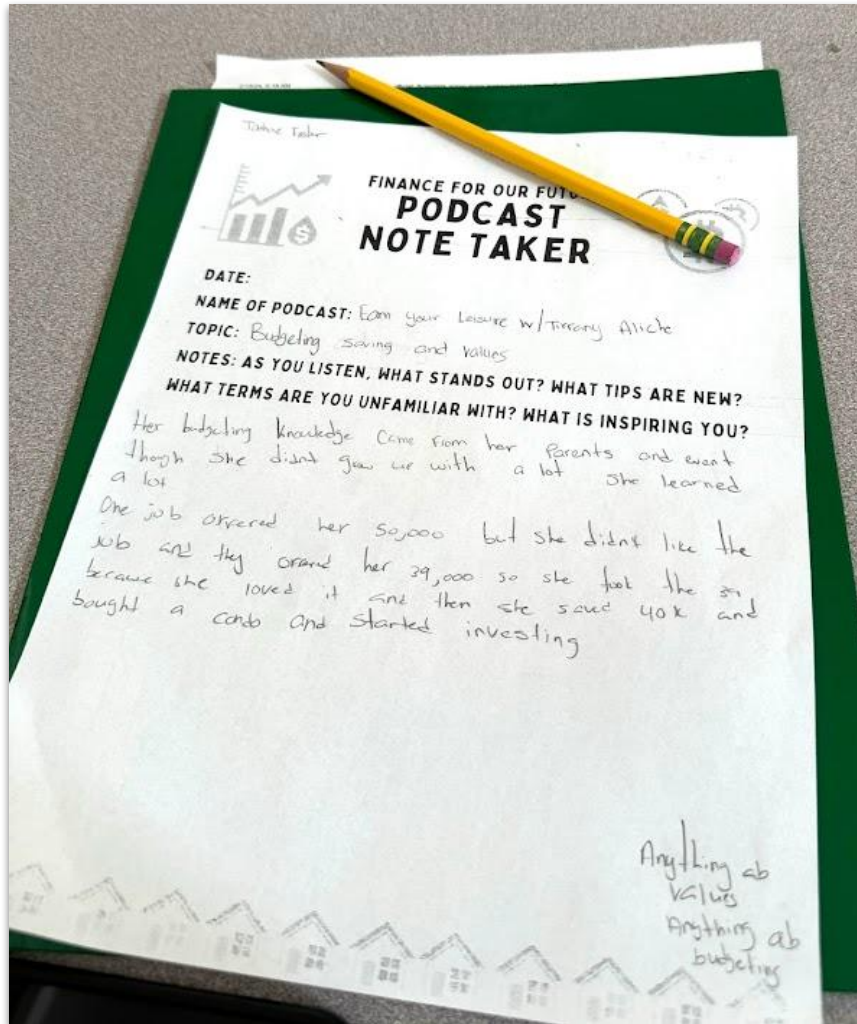 FINANCE FOR OUR
PODCAST
NOTE TAKER
DATE:
NAME OF PODCAST: Earn your Leisure w/Tiffany Aliche
TOPIC: Budgeting saving and values
NOTES: AS YOU LISTEN, WHAT STANDS OUT? WHAT TIPS ARE NEW?
WHAT TERMS ARE YOU UNFAMILIAR WITH? WHAT IS INSPIRING YOU?
Her budgeting knowledge came from her parents and
though she didnt grow up with a lot she learned
a lot
One job offered her 50,000 but she didnt like the
job and they offered her 39,000 so she took the 39
because she loved it and then she saved 40k and
bought a condo and started investing
Anything ab
values
Anything ab
budgeting